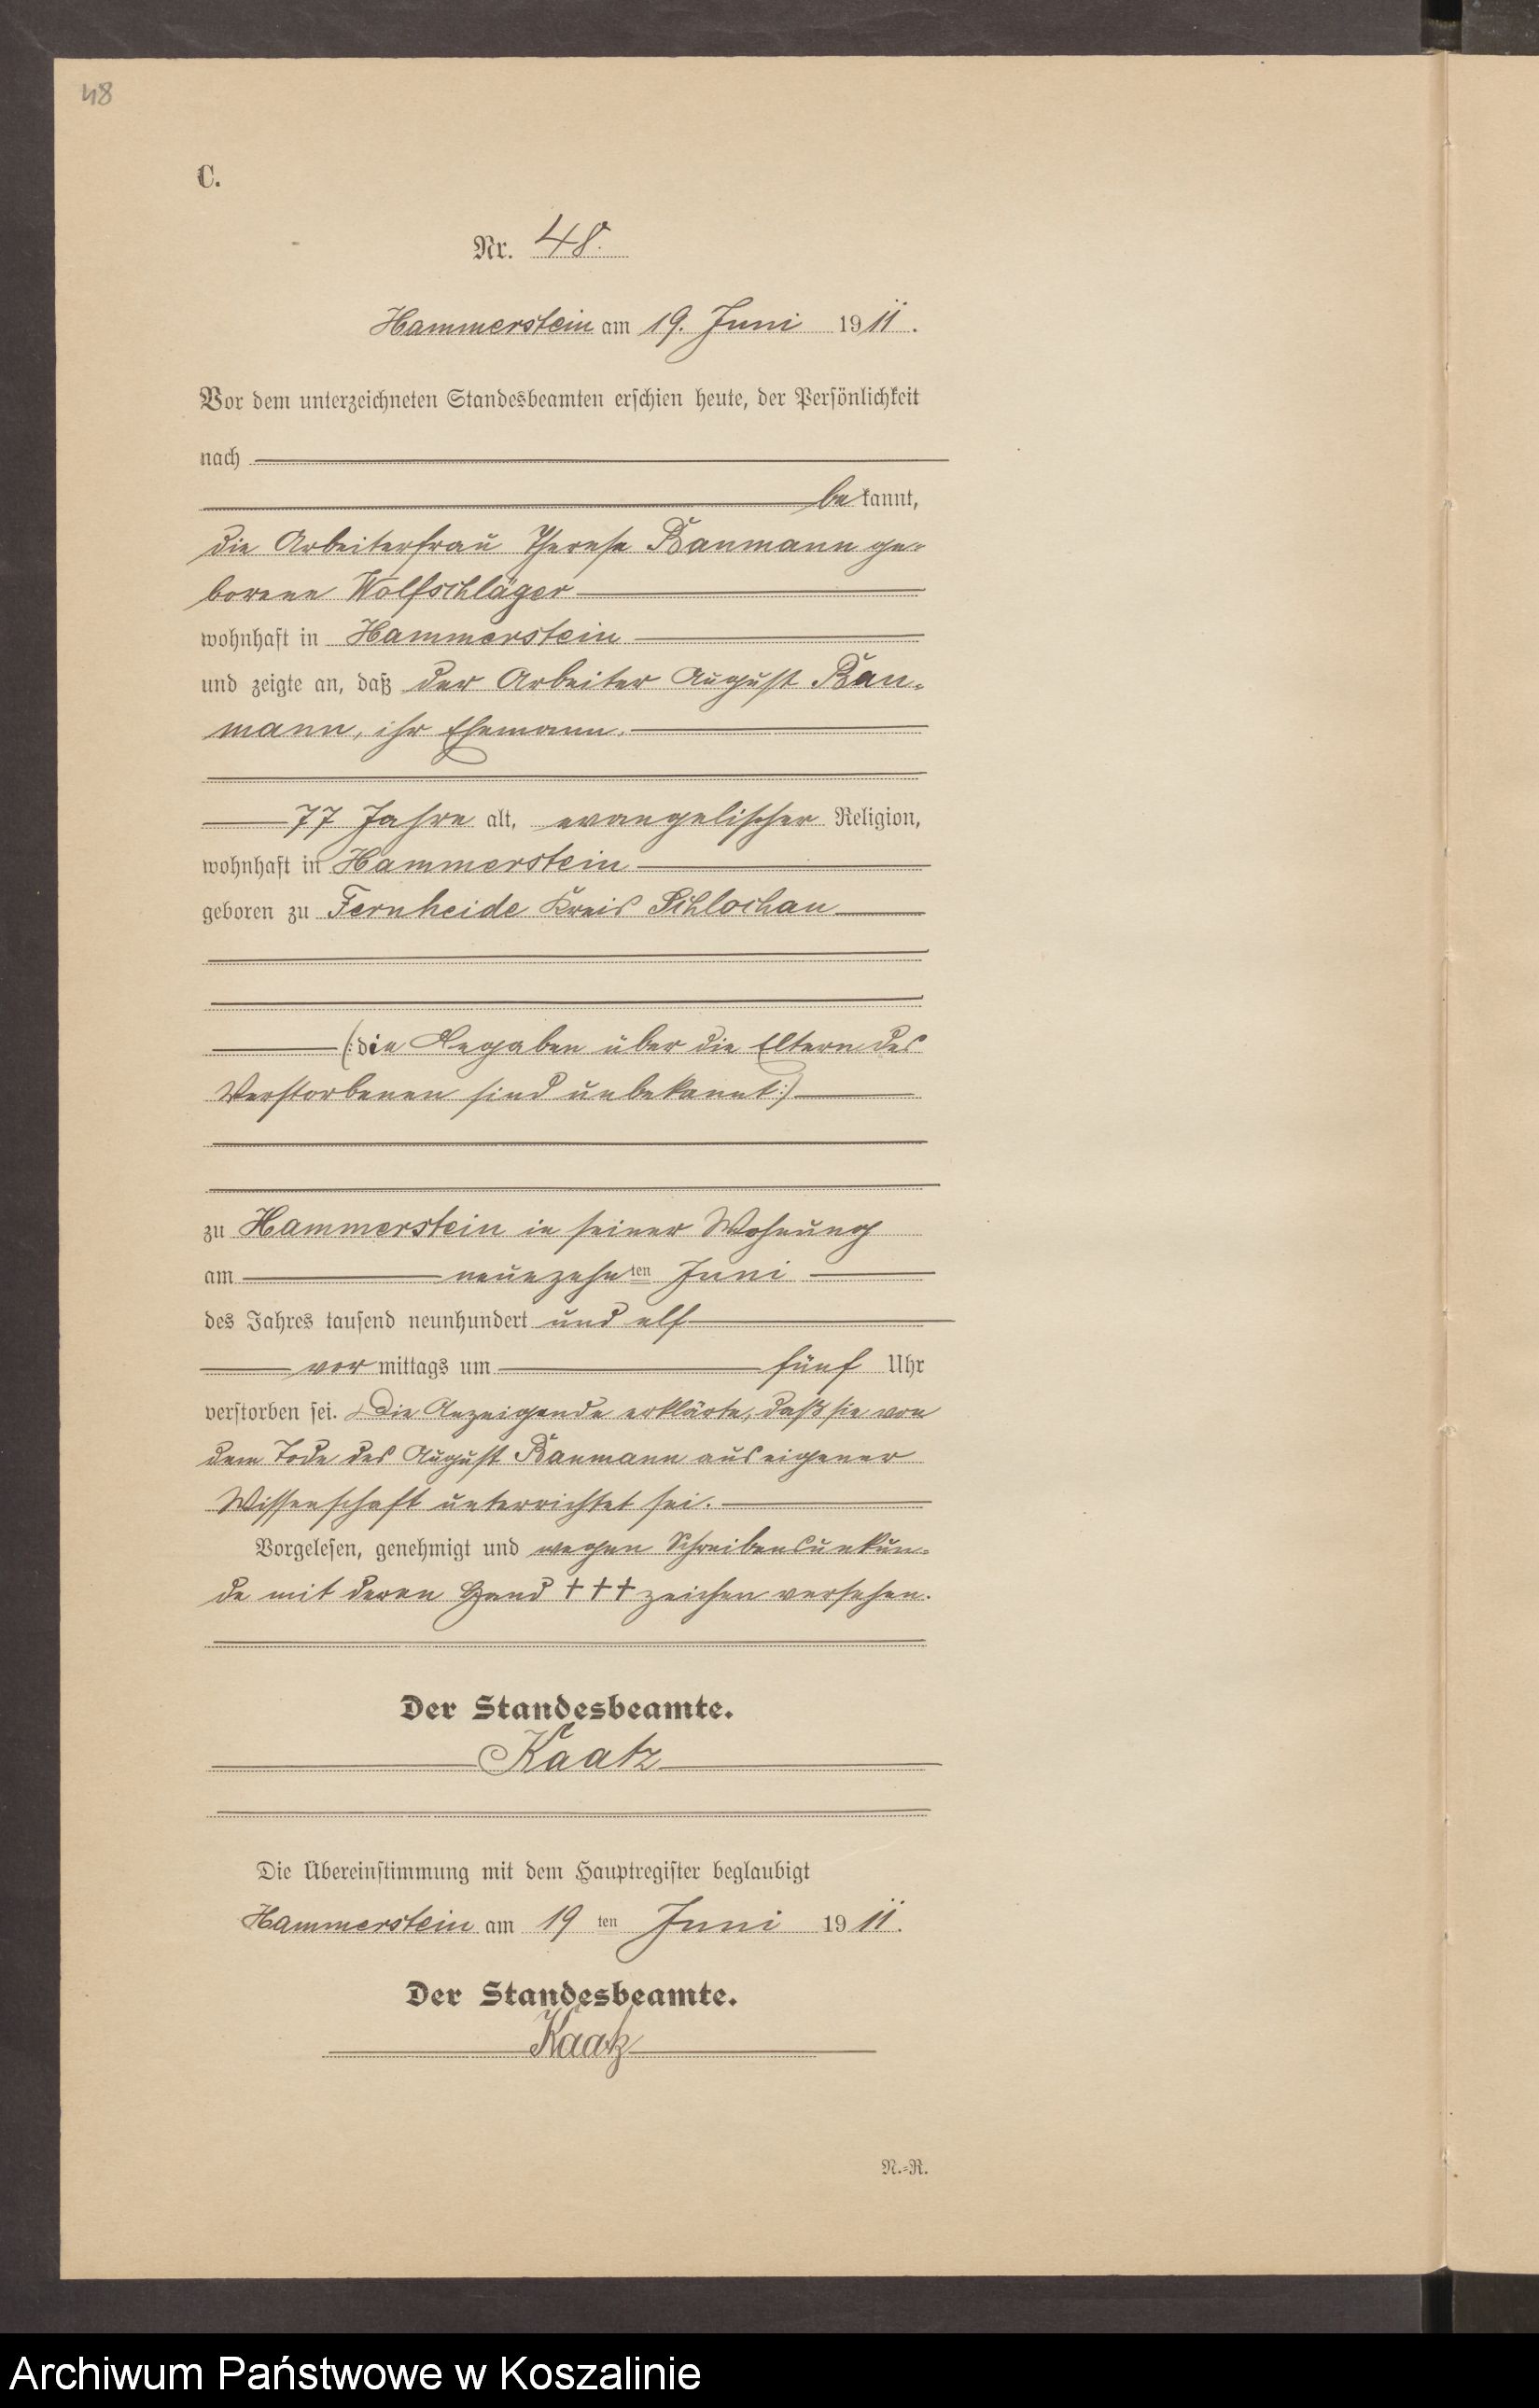 48
C.
Nr. 48.
Hammerstein am 19. Juni 1911.
Vor dem unterzeichneten Standesbeamten erschien heute, der Persönlichkeit
nach
bekannt,
die Arbeiterfrau Therese Banmann ge-
borene Wolfschläger
wohnhaft in Hammerstein
und zeigte an, daß der Arbeiter August Ban-
mann, ihr Ehemann.
77 Jahre alt, evangelischer Religion,
wohnhaft in Hammerstein
geboren zu Fernheide Kreis Schlochau
(: die Angaben über die Eltern des
Verstorbenen sind unbekannt :)
zu Hammerstein in seiner Wohnung
am neunzehnten Juni
des Jahres tausend neunhundert und elf
vormittags um fünf Uhr
verstorben sei. Die Anzeigende erklärte, daß sie von
dem Tode des August Banmann aus eigener
Wissenschaft unterrichtet sei.
Vorgelesen, genehmigt und wegen Schreibensunkun-
de mit deren Hand +++ zeichen versehen.
Der Standesbeamte.
Kaatz
Die Übereinstimmung mit dem Hauptregister beglaubigt
Hammerstein am 19ten Juni 1911.
Der Standesbeamte.
Kaatz
N.-R.
Archiwum Państwowe w Koszalinie